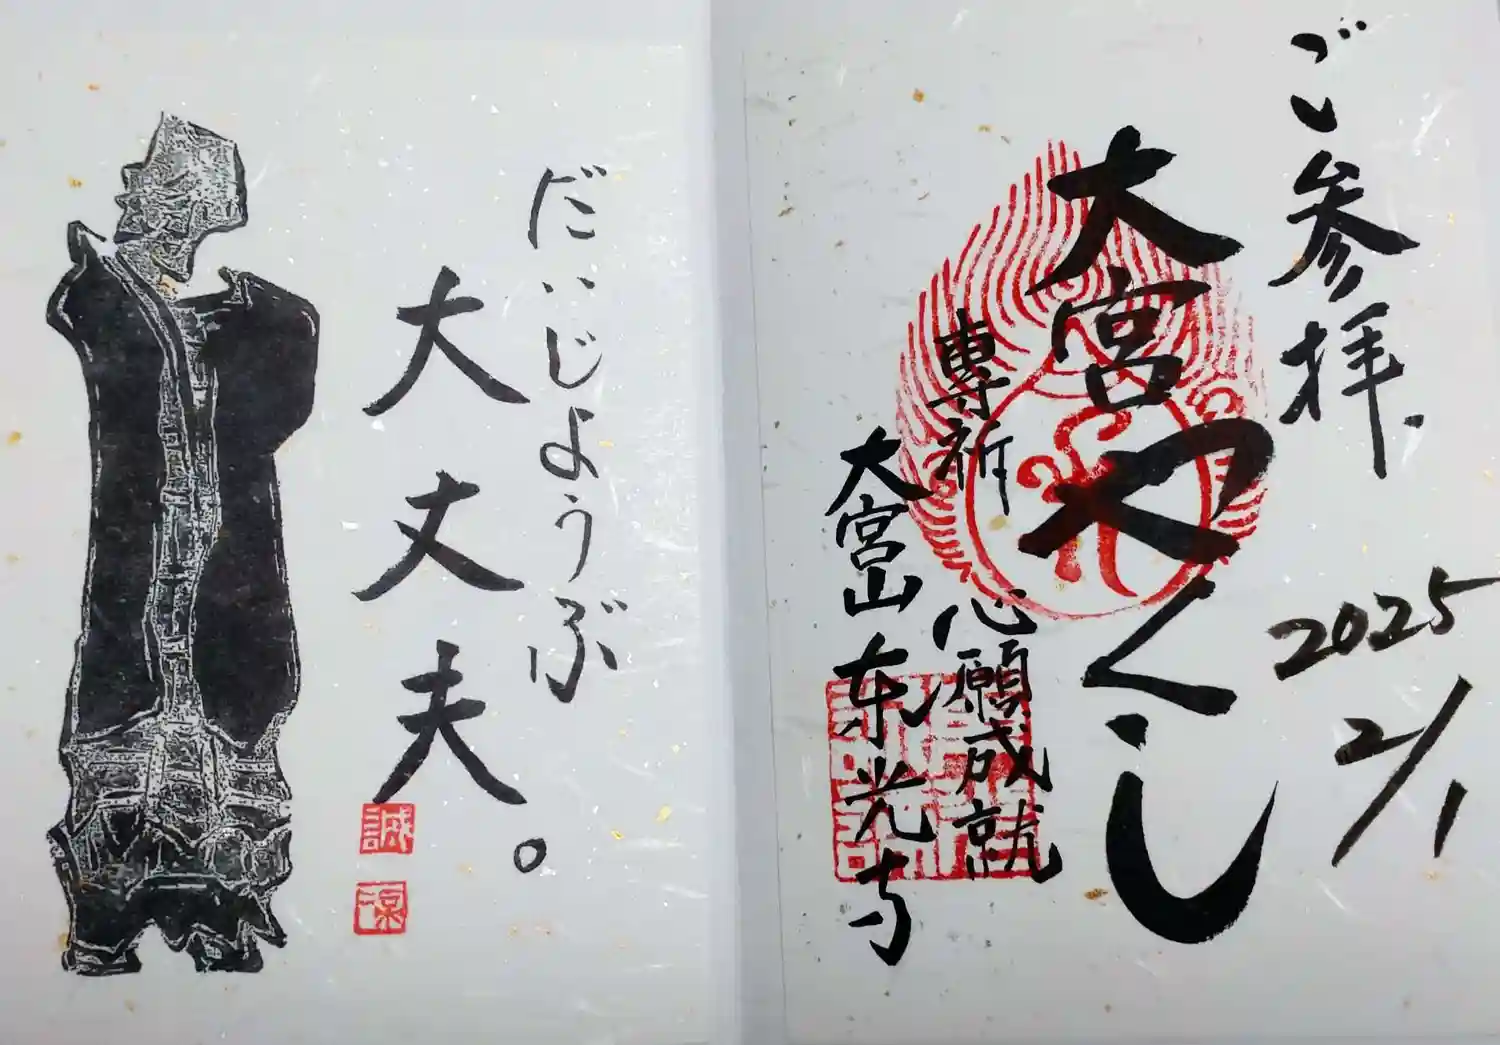 ご参拝.
2025
2/1
大宮やくし
専祈
心願成就
大宮山
东光寺
だいじようぶ
大丈夫。
誠